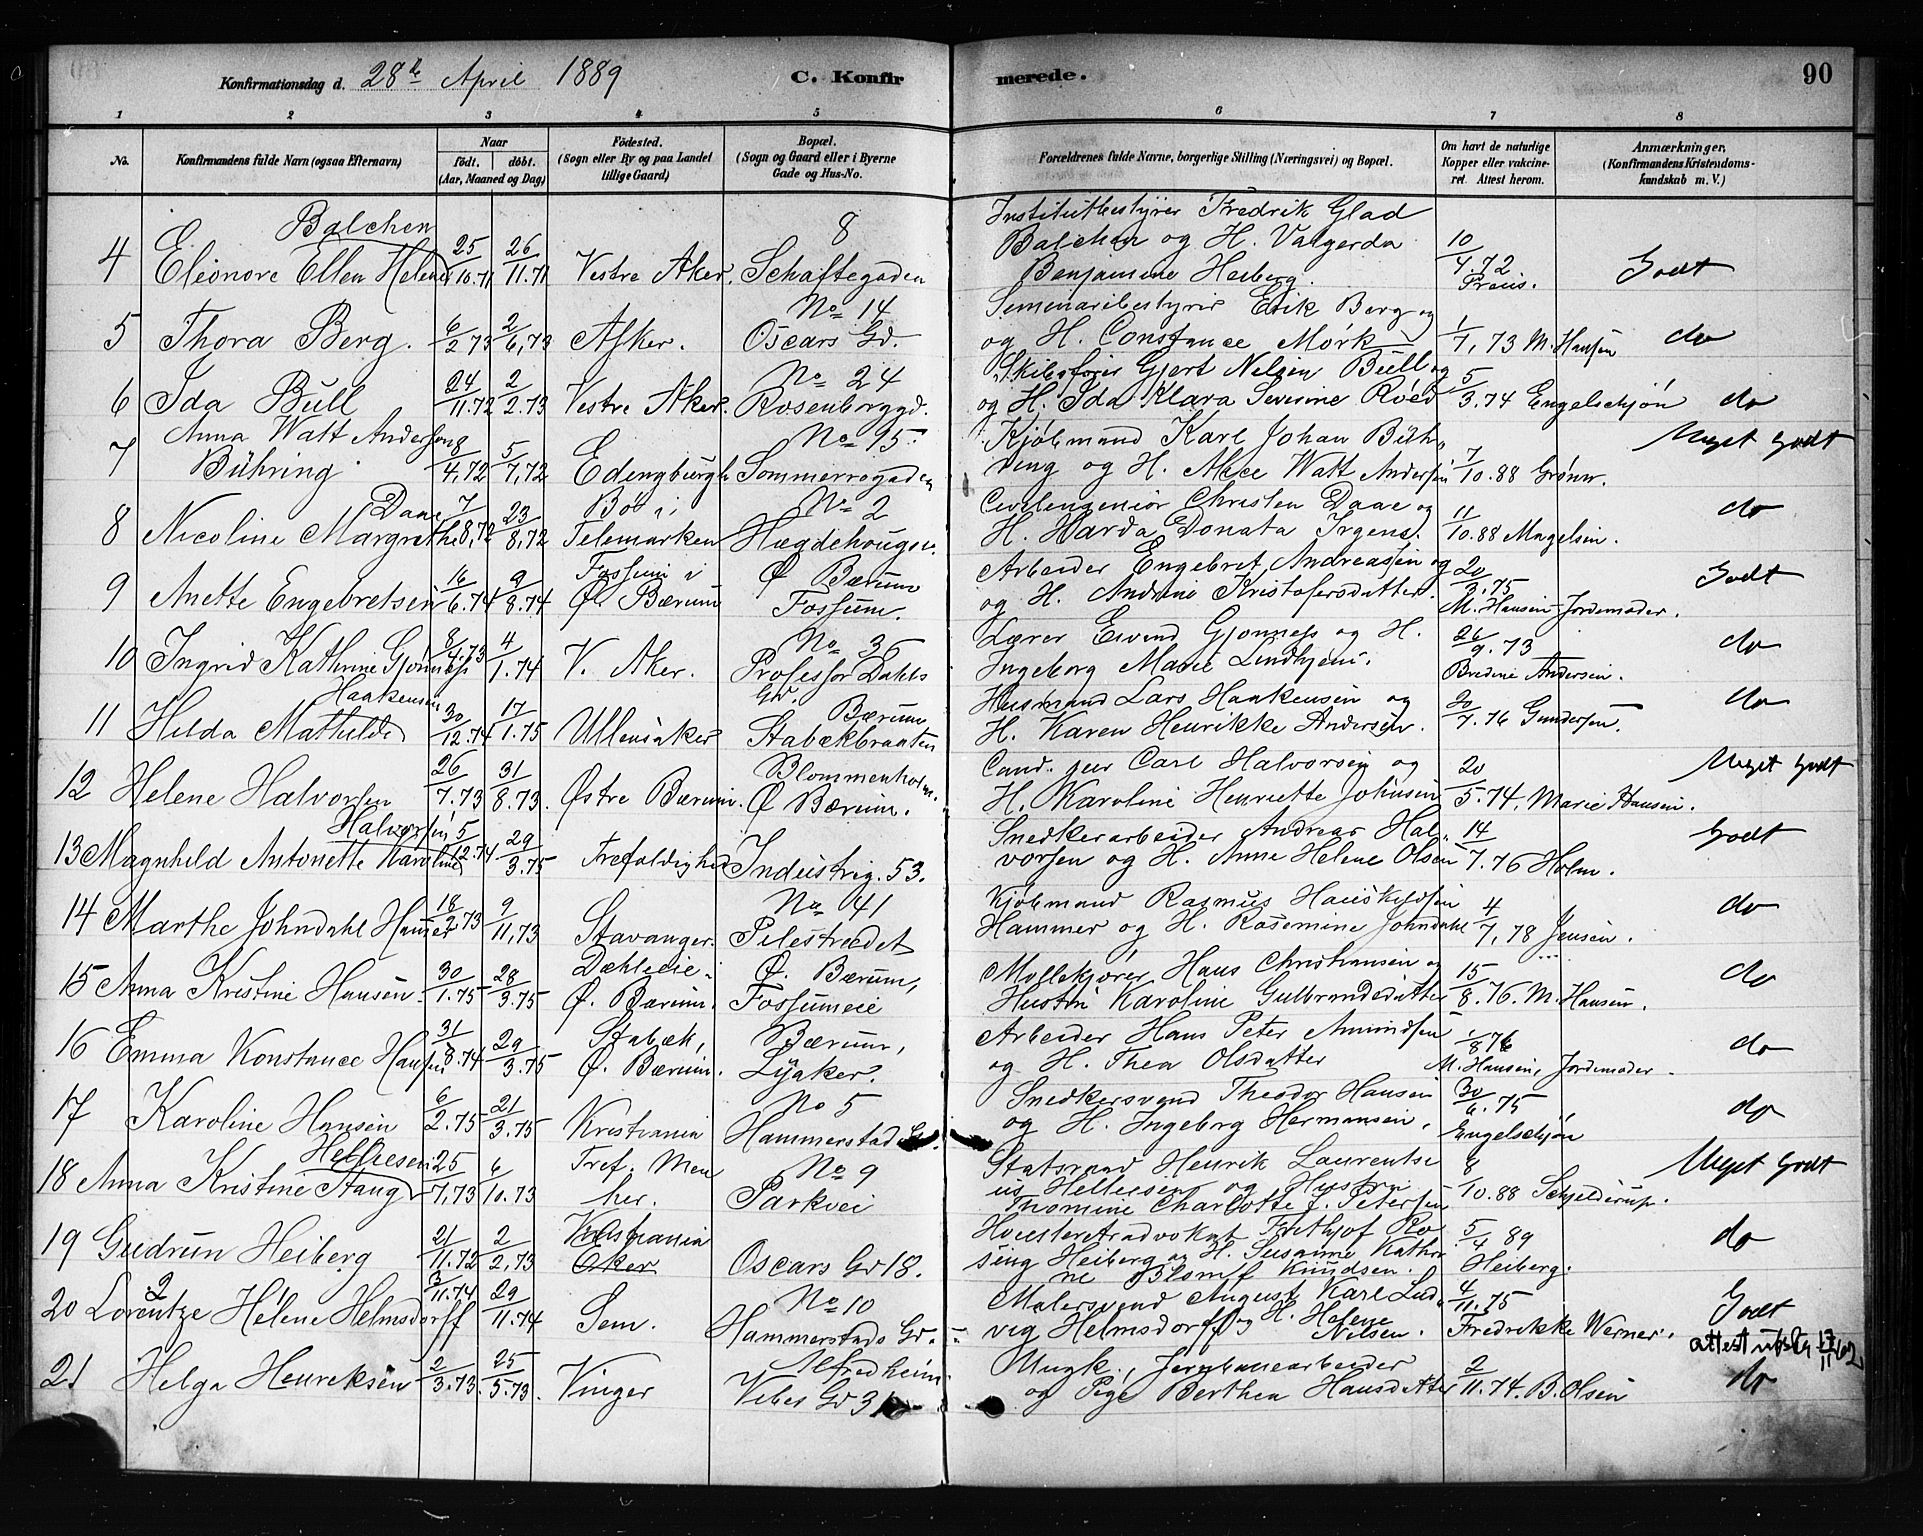 Konfirmationsdag d. 28de April 1889 C. Konfirmerede. 90
1 2 3 4 5 6 7 8
No. Konfirmandens fulde Navn (ogsaa Efternavn) Naar født. døbt. (Aar, Maaned og Dag) Fødested. (Sogn eller By og paa Landet tillige Gaard) Bopæl. (Sogn og Gaard eller i Byerne Gade og Hus-No. Forældrenes fulde Navne, borgerlige Stilling (Næringsvei) og Bopæl. Om havt de naturlige Kopper eller vakcineret. Attest herom. Anmærkninger, (Konfirmandens Kristendomskundskab m. V.)
Balchen 8 Institutbestyrer Fredrik Glad
4 Eleonore Ellen Helene 25/10.71 26/11.71 Vestre Aker. Schaftegaden Balchen og H. Valgerda
Benjamine Heiberg. 10/4.72 Preus. Godt
No 14 Seminaribestyrer Erik Berg og
5 Thora Berg. 6/2 73 2/6,73 Asker. Oscars Gd. og H. Constance Mørk 1/7,73 M. Hansen do
No 24 Skibsfører Gjert Nelsen Bull og
6 Ida Bull 24/11.72 2/2.73 Vestre Aker. Rosenborggd. og H. Ida Klara Severine Röed 5/3.74 Engelschjøn do
Anna Watt Andersen No 15. Kjøbmand Karl Johan Büh-
7 Bühring 8/4,72 5/7,72 Edengburgh Sommerrogaden ring og H. Alice Watt Andersen 7/10.88 Grønn. Meget Godt
Daae Bø i No 2 Civilengeniør Christen Daae og
8 Nicoline Margrethe 7/8,72 23/8,72 Telemarken Hægdehougsv. H. Harda Donata Irgens. 11/10.88 Magelsen. do
Fossum i Ø Bærum Arbeider Engebret Andreassen og
9 Anette Engebretsen 16/6.74 9/8.74 Ø. Bærum Fossum. og H. Andrine Kristofersdatter. 20/3.75 M. Hansen Jordemoder. Godt
No 36 Lærer Eivend Gjønness og H.
10 Ingrid Kathrine Gjønness 8/4.73 4/1.74 V. Aker. Professor Dahls Gd. Ingeborg Marie Lindhjem. 26/9.73 Bredine Andersen. do
Haakensen Bærum Husmand Lars Haakensen og
11 Hilda Mathilde 30/12.74 17/1.75 Ullensaker Stabækbraaten H. Karen Henrikke Andersen. 20/7.76 Gundersen. do
Blommenholm. Cand. jur Carl Halvorsen og
12 Helene Halvorsen 26/7.73 31/8.73. Østre Bærum. Ø Bærum. H. Karoline Henriette Johnsen 20/5.74, Marie Hansen. Meget Godt
Halvorsen Snedkerarbeider Andreas Hal-
13 Magnhild Antonette Karoline 5/12.74 29/3.75 Trefoldighed Industrig. 53. vorsen og H. Anne Helene Olsen 14/7.76 Holm. Godt
No 41 Kjøbmand Rasmus Hauskeldsen
14 Marthe Johndahl Hammer 18/2 73 9/11,73 Stavanger. Pilestrædet Hammer og H. Rasemine Johndahl 4/7,78 Jensen. do
Dæhleeie i Ø. Bærum, Møllekjører Hans Christiansen og
15 Anna Kristine Hansen. 30/1.75 28/3.75 Ø. Bærum. Fossumeie Hustru Karoline Gulbrandsdatter 15/8.76. M. Hansen. do
Stabæk, Bærum, Arbeider Hans Peter Amundsen
16 Emma Konstance Hansen 31/8.74 29/3.75 Ø. Bærum. Lysaker. og H. Thea Olsdatter 1/8 76 M. Hansen, Jordemoder. do
No 5 Snedkersvend Theodor Hansen
17 Karoline Hansen 6/2.75 21/3.75 Kristiania Hammerstad G. og H. Ingeborg Hermansen. 30/6.75 Engelschjøn do
Helliesen Tref. Men No 9 Statsraad Henrik Laurentsi
18 Anna Kristine Stang 25/7,73 6/10.73 her. Parkvei us Helliesen og Hustru
Thomine Charlotte f. Petersen 8/10.88 Schjelderup. Meget Godt
Kristiania Høiesteretsadvokat Frithjof Ro
19 Gudrun Heiberg 21/11.72 2/2,73 Aker Oscars Gd 18. sing Heiberg og H. Susanne Kathri
ne Blom f Knudsen. 5/4 89 Heiberg. do
No 10 Malersvend August Karl Lud
20 Lorentze Helene Helmsdorff 3/11.74 29/11.74 Sem. Hammerstads Gd. vig Helmsdorff og H. Helene Nilsen. 4/11.75 Fredrikke Werner. Godt
attest utsta 17/11 02
Alfredheim Ungk., Jernbanearbeider
21 Helga Henriksen 2/3.73. 25/5.73. Vinger Vibes Gd 31 og Pige Berthea Hansdatter 2/11.74. B. Olsen do